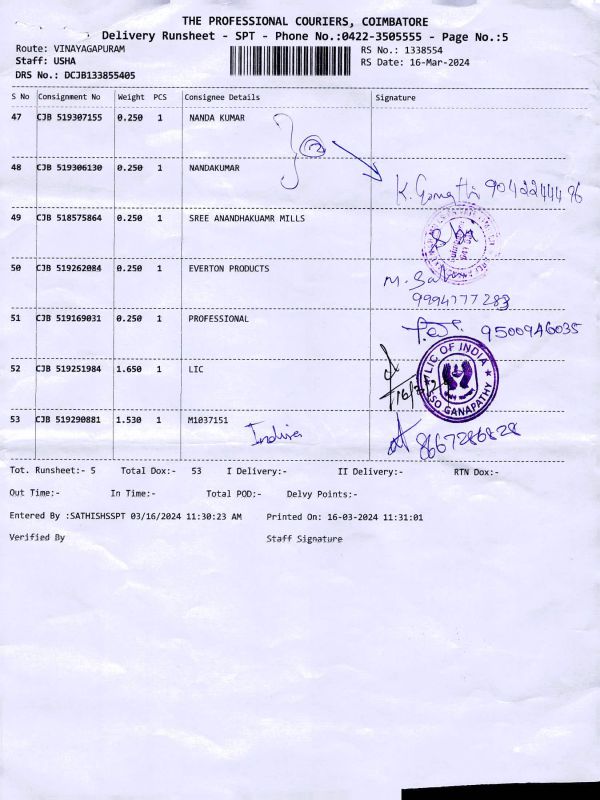 THE PROFESSIONAL COURIERS, COIMBATORE
Delivery Runsheet - SPT - Phone No.:0422-3505555 - Page No.:5
Route: VINAYAGAPURAM RS No.: 1338554
Staff: USHA RS Date: 16-Mar-2024
DRS No.: DCJB133855405
S No Consignment No Weight PCS Consignee Details Signature
47 CJB 519307155 0.250 1 NANDA KUMAR
48 CJB 519306130 0.250 1 NANDAKUMAR
K. Gomathi 9042244496
49 CJB 518575864 0.250 1 SREE ANANDHAKUAMR MILLS
50 CJB 519262084 0.250 1 EVERTON PRODUCTS
9994777283
51 CJB 519169031 0.250 1 PROFESSIONAL
9500946035
52 CJB 519251984 1.650 1 LIC
LIC OF INDIA
SSO GANAPATHY
53 CJB 519290881 1.530 1 M1037151
8667286828
Tot. Runsheet:- 5 Total Dox:- 53 I Delivery:- II Delivery:- RTN Dox:-
Out Time:- In Time:- Total POD:- Delvy Points:-
Entered By :SATHISHSSPT 03/16/2024 11:30:23 AM Printed On: 16-03-2024 11:31:01
Verified By Staff Signature